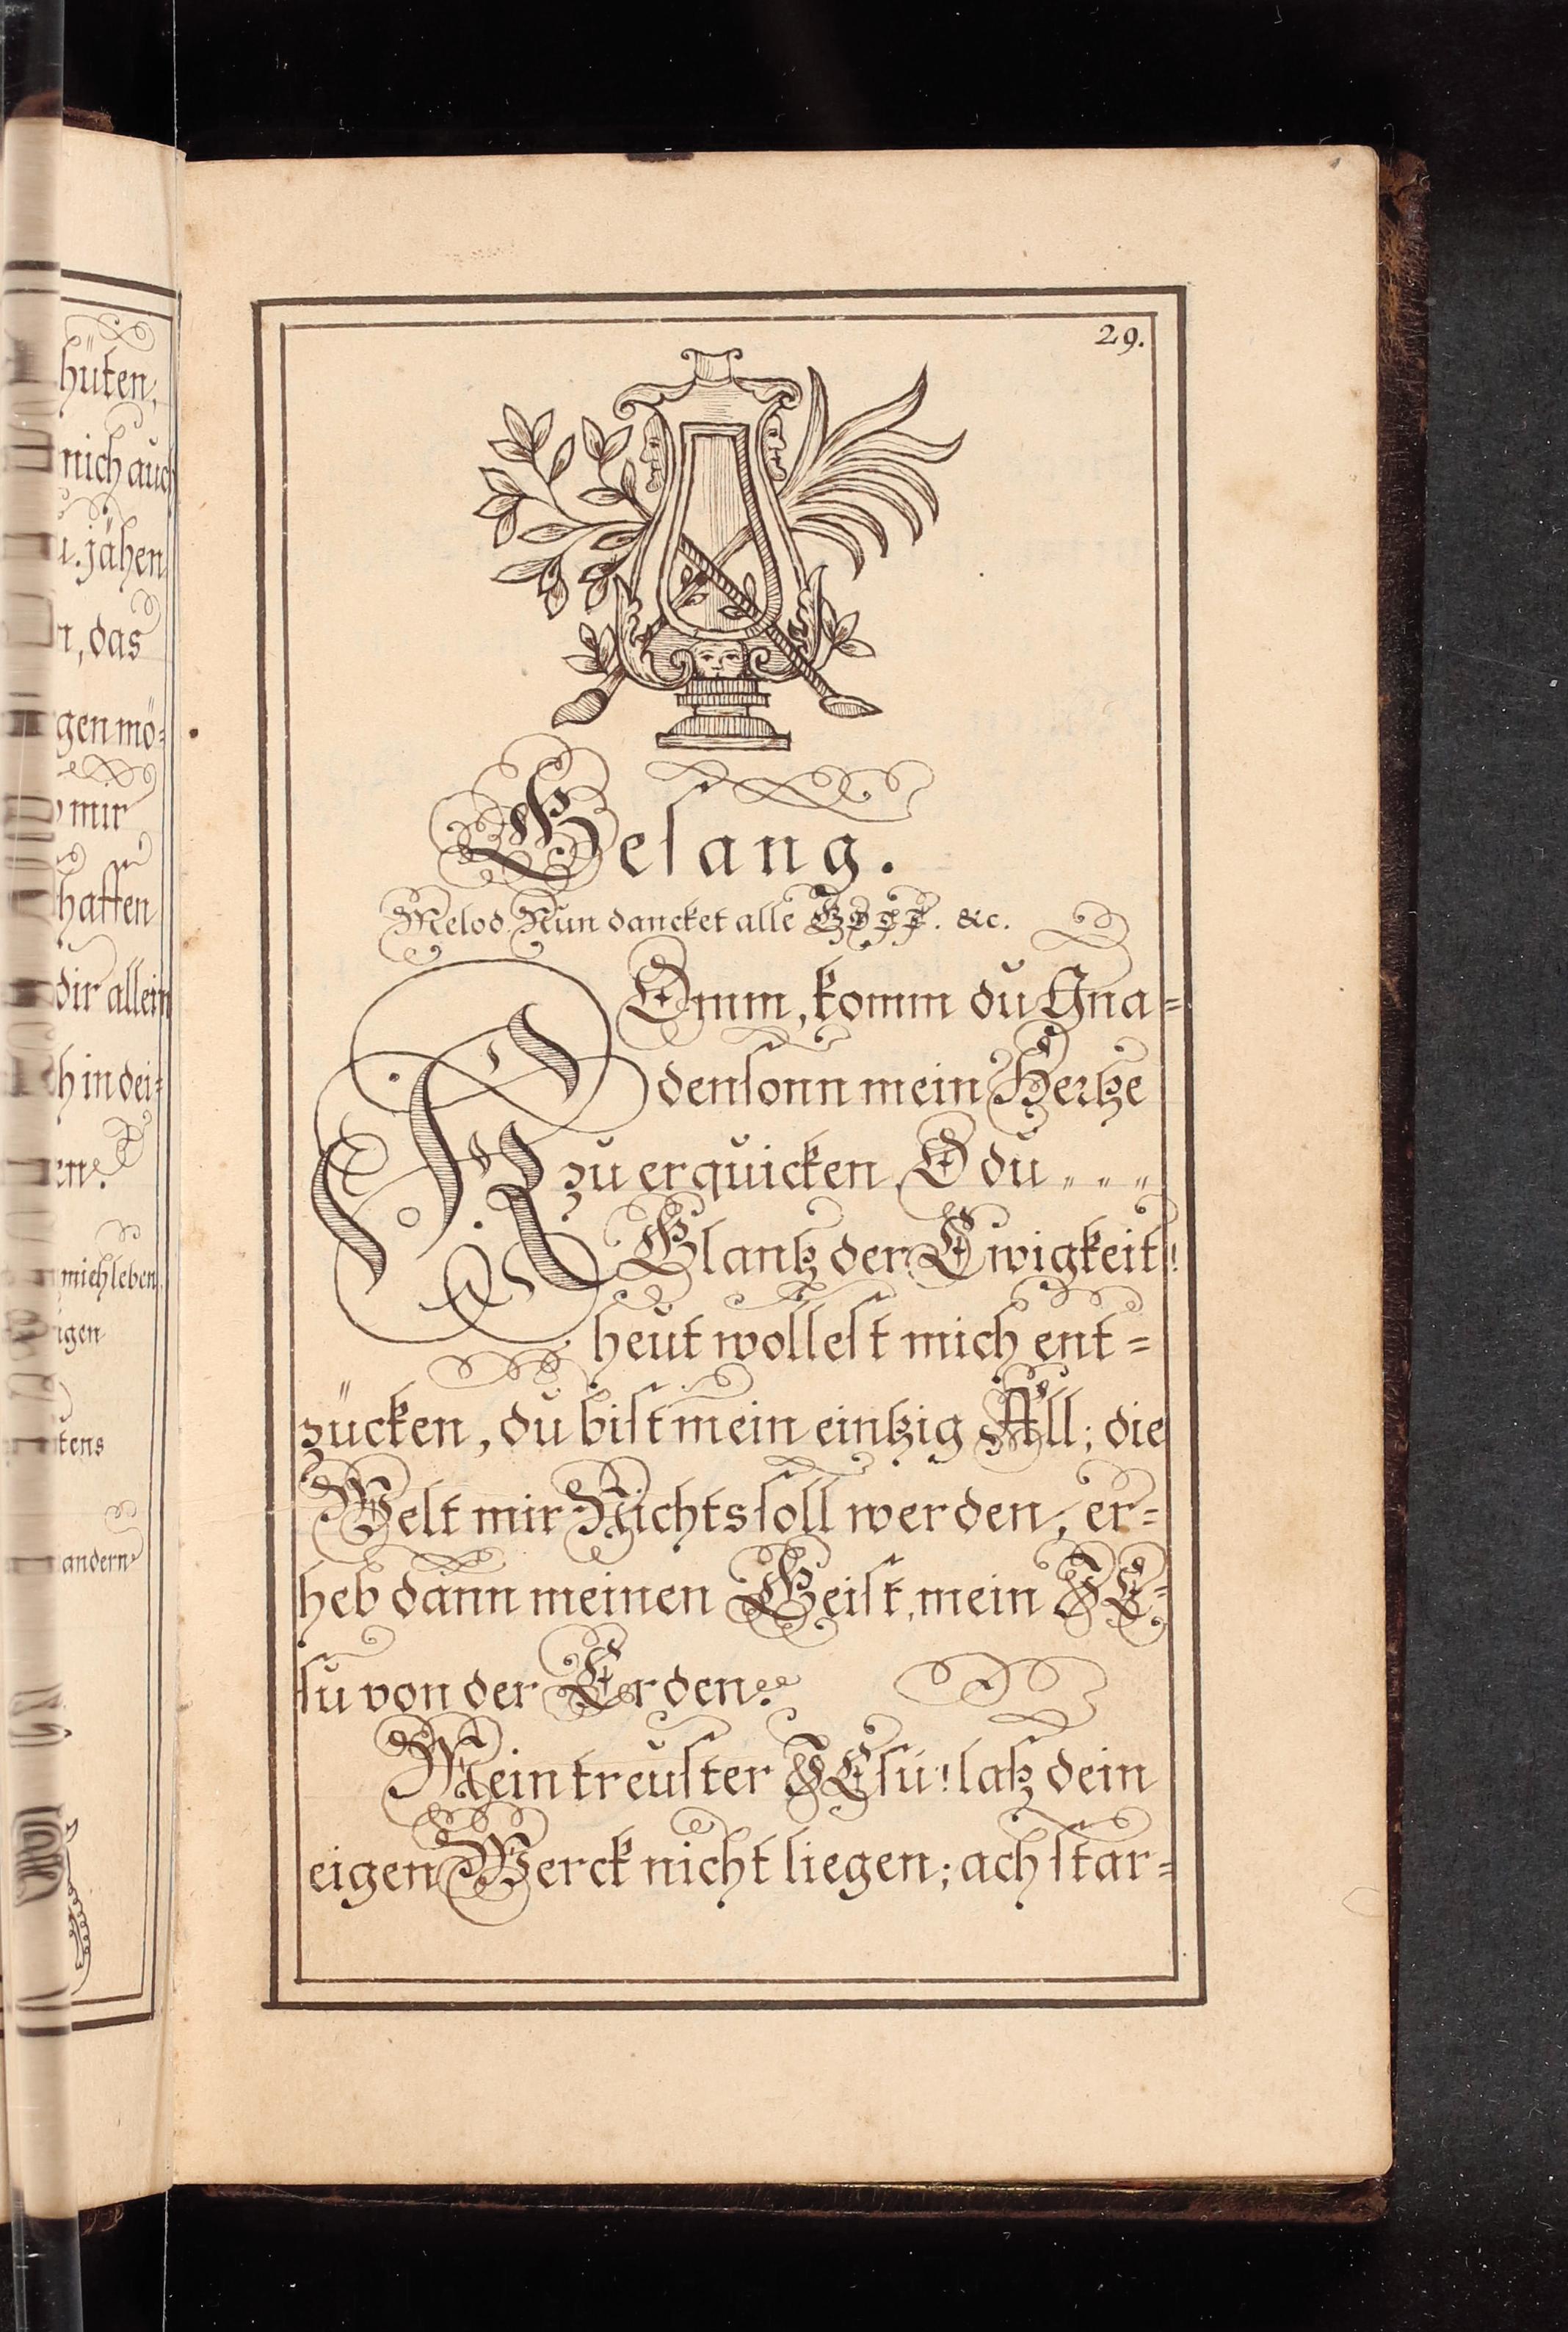 hüten,
mich auch
u. jähen
n, das
gen mö=
mir
haffen
dir allein
ch in dei=
en.
mich leben
igen
tens
andern
29.
Gesang.
Melod. Nun dancket alle GOTT. &c.
KOmm, komm du Gna=
densonn mein Hertze
zu erquicken, O du „ „ „
Glantz der Ewigkeit!
heut wollest mich ent=
zücken, du bist mein eintzig All; die
Welt mir Nichts soll werden; er=
heb dann meinen Geist, mein JE=
su von der Erden.
Mein treuster JEsu! laß dein
eigen Werck nicht liegen; ach star=